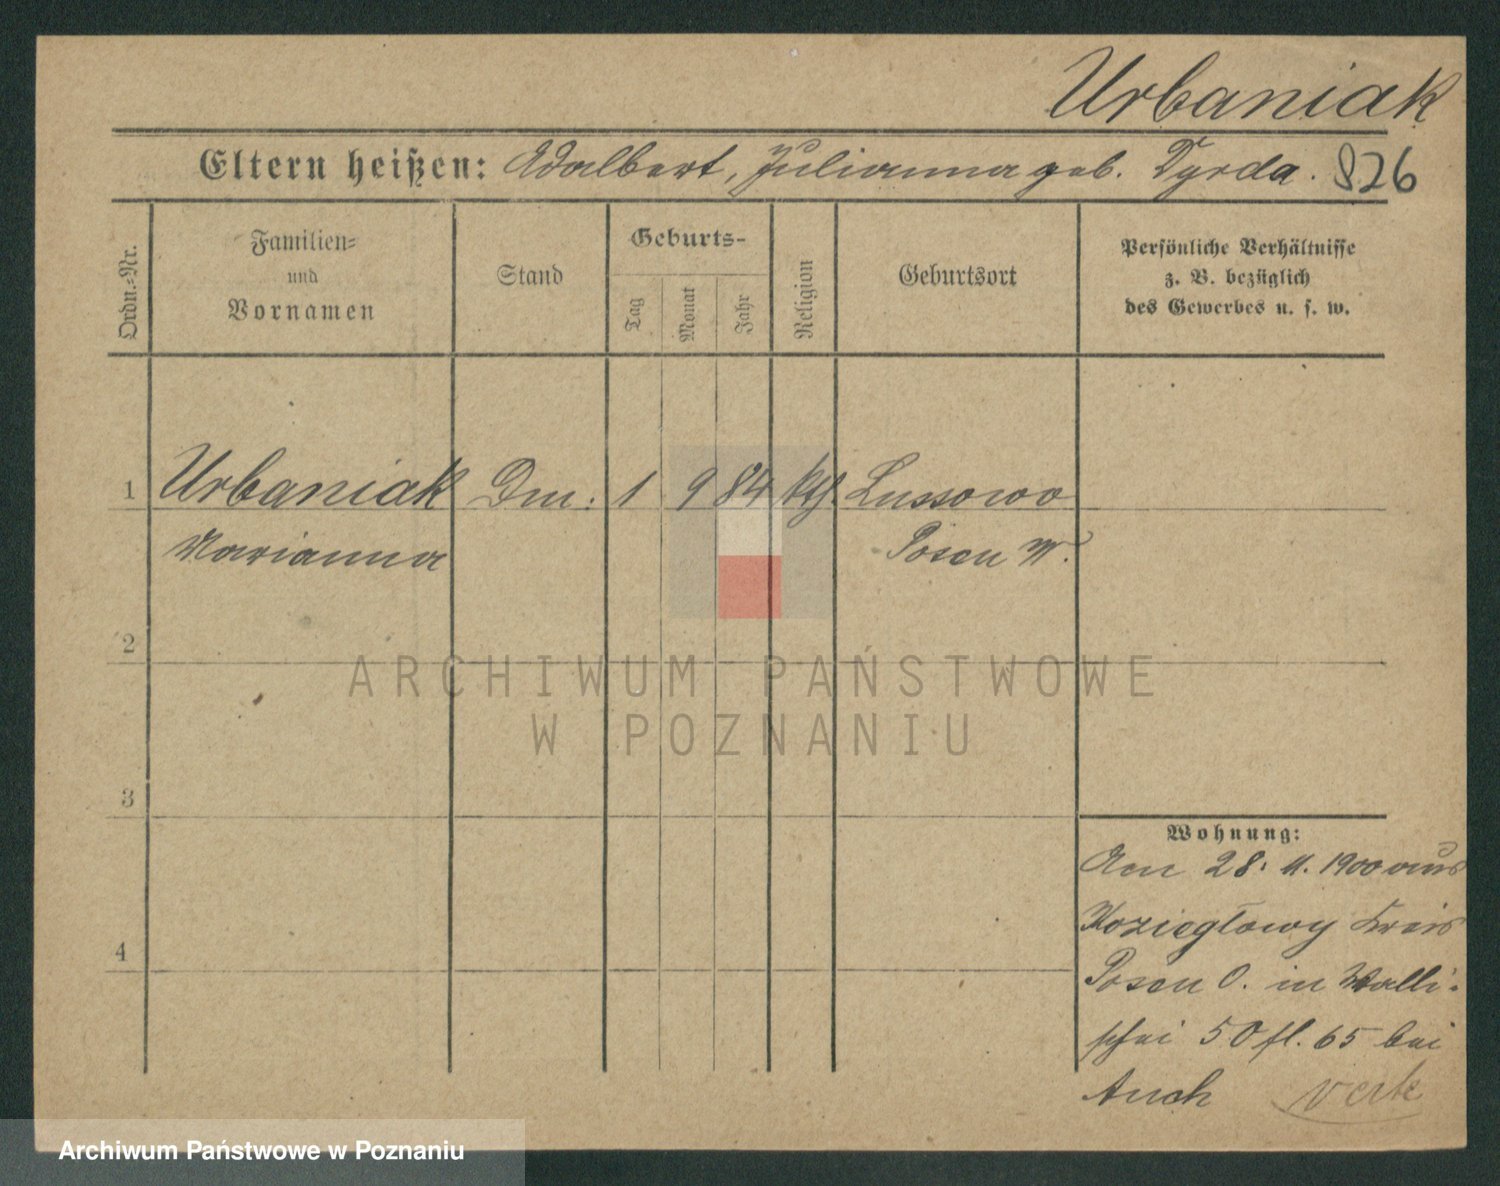 Urbaniak
Eltern heißen: Adalbert, Julianna geb. Tyrda. 826
Ordn.-Nr.
Familien-
und
Vornamen
Stand
Geburts-
Tag
Monat
Jahr
Religion
Geburtsort
Persönliche Verhältnisse
z. B. bezüglich
des Gewerbes u. s. w.
1 Urbaniak Dm: 1 9 84 kth. Lussowo
Marianna Posen W.
2
3
4
Wohnung:
Am 28. 11. 1900 aus
Koziegłowy Kreis
Posen O. in Walli-
schei 50 fl. 65 bei
Auch
verte
ARCHIWUM PAŃSTWOWE
W POZNANIU
Archiwum Państwowe w Poznaniu